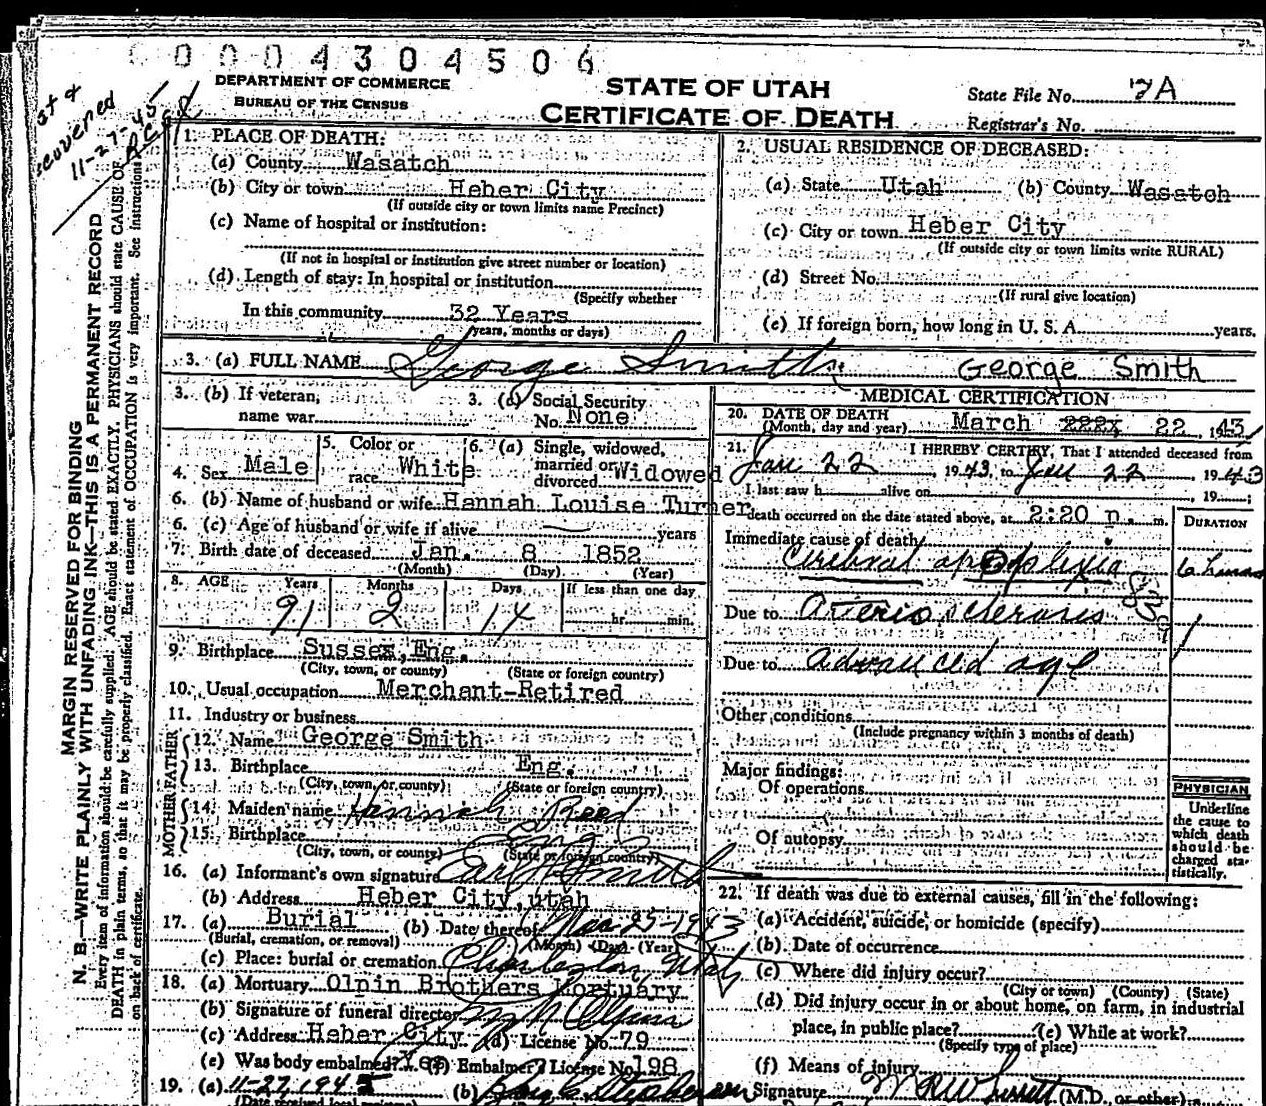 0004304506
DEPARTMENT OF COMMERCE
BUREAU OF THE CENSUS
STATE OF UTAH
CERTIFICATE OF DEATH
State File No. 7A
Registrar's No.
11-27-45
MARGIN RESERVED FOR BINDING
N. B.—WRITE PLAINLY WITH UNFADING INK—THIS IS A PERMANENT RECORD
Every item of information should be carefully supplied. AGE should be stated EXACTLY. PHYSICIANS should state CAUSE OF
DEATH in plain terms, so that it may be properly classified. Exact statement of OCCUPATION is very important. See instructions
on back of certificate.
1. PLACE OF DEATH:
(a) County Wasatch
(b) City or town Heber City
(If outside city or town limits name Precinct)
(c) Name of hospital or institution:
(If not in hospital or institution give street number or location)
(d) Length of stay: In hospital or institution
(Specify whether
In this community 32 Years
years, months or days)
2. USUAL RESIDENCE OF DECEASED:
(a) State Utah (b) County Wasatch
(c) City or town Heber City
(If outside city or town limits write RURAL)
(d) Street No.
(If rural give location)
(e) If foreign born, how long in U. S. A. years.
3. (a) FULL NAME George Smith George Smith
3. (b) If veteran,
name war
3. (c) Social Security
No. None
4. Sex Male
5. Color or
race White
6. (a) Single, widowed,
married or
divorced Widowed
6. (b) Name of husband or wife Hannah Louise Turner
6. (c) Age of husband or wife if alive — years
7. Birth date of deceased Jan. 8 1852
(Month) (Day) (Year)
8. AGE Years Months Days If less than one day
91 2 14 hr. min.
9. Birthplace Sussex, Eng.
(City, town, or county) (State or foreign country)
10. Usual occupation Merchant-Retired
11. Industry or business
FATHER
12. Name George Smith
13. Birthplace Eng.
(City, town, or county) (State or foreign country)
MOTHER
14. Maiden name Hannah Reed
15. Birthplace Eng
(City, town, or county) (State or foreign country)
16. (a) Informant's own signature Carl Smith
(b) Address Heber City, utah
17. (a) Burial (b) Date thereof Mar 25-1943
(Burial, cremation, or removal) (Month) (Day) (Year)
(c) Place: burial or cremation Charleston, Utah
18. (a) Mortuary Olpin Brothers Mortuary
(b) Signature of funeral director
(c) Address Heber City (d) License No. 79
(e) Was body embalmed? Yes (f) Embalmer's License No. 198
19. (a) 11-27, 1945 (b)
(Date received local
MEDICAL CERTIFICATION
20. DATE OF DEATH
(Month, day and year) March 22, 1943
21. I HEREBY CERTIFY, That I attended deceased from
Jan 22 1943, to Jan 22, 1943
I last saw h alive on 19 ;
death occurred on the date stated above, at 2:20 p. m.
DURATION
Immediate cause of death
Cerebral apoplexia 6 hours
Due to Arterio sclerosis
Due to advanced age
Other conditions
(Include pregnancy within 3 months of death)
Major findings:
Of operations
Of autopsy
PHYSICIAN
Underline
the cause to
which death
should be
charged sta-
tistically.
22. If death was due to external causes, fill in the following:
(a) Accident, suicide, or homicide (specify)
(b) Date of occurrence
(c) Where did injury occur?
(City or town) (County) (State)
(d) Did injury occur in or about home, on farm, in industrial
place, in public place? (e) While at work?
(Specify type of place)
(f) Means of injury
Signature (M.D. or other)